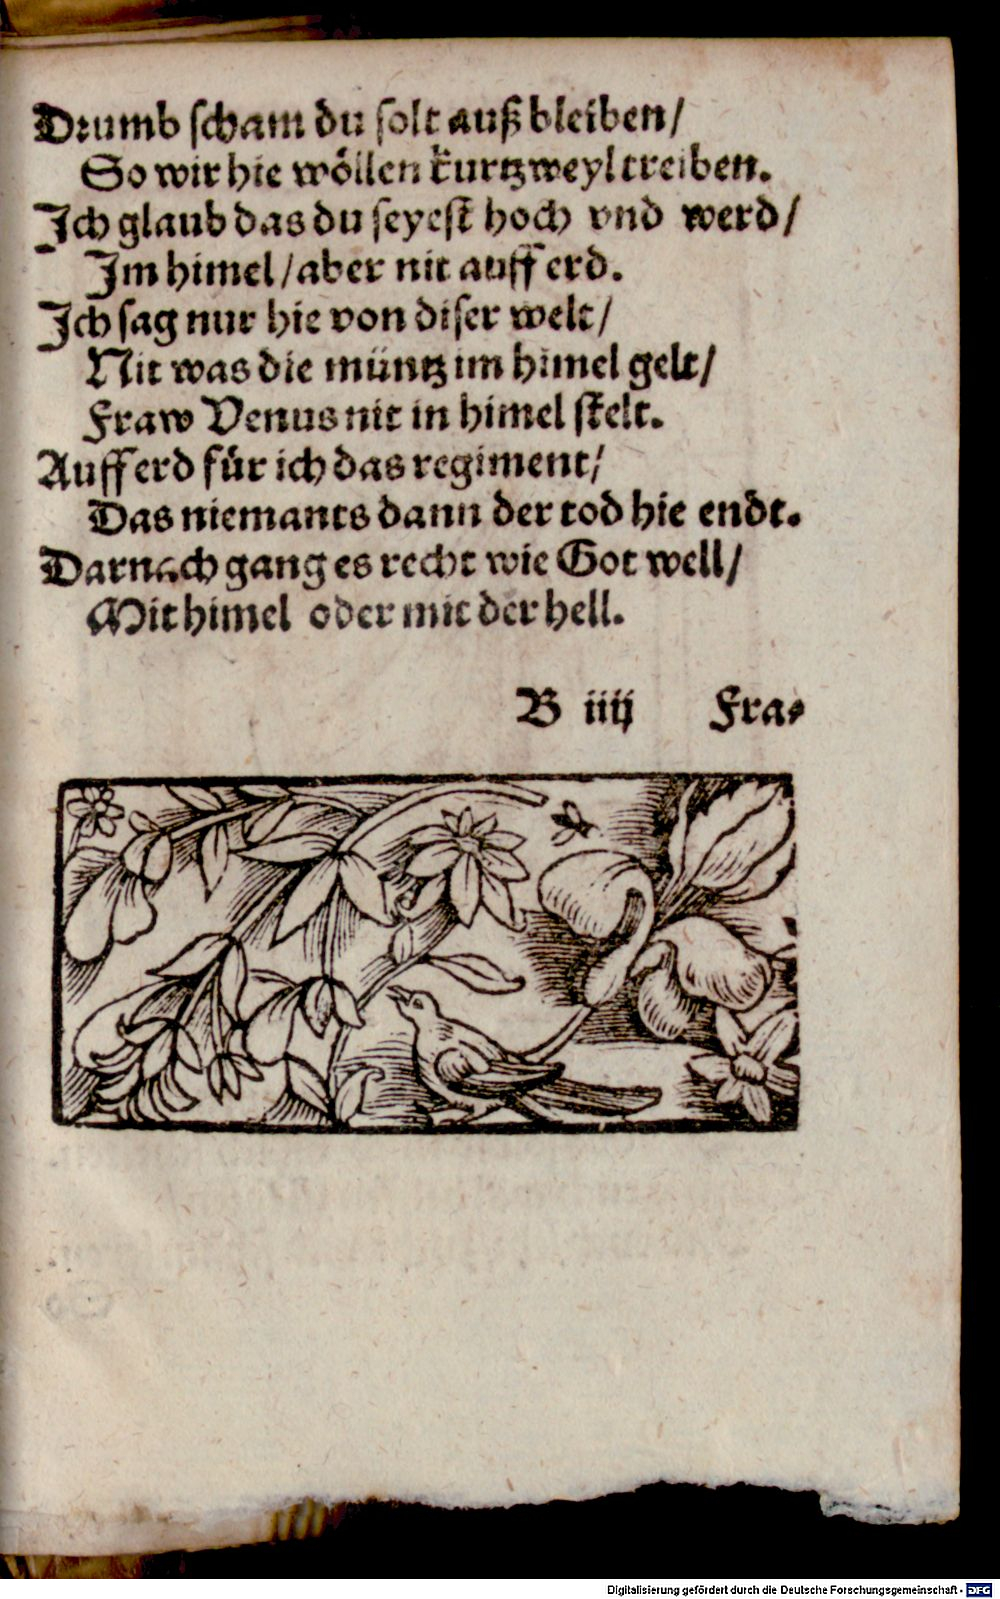 Drumb scham du solt auß bleiben/
So wir hie wöllen kurtzweyl treiben.
Ich glaub das du seyest hoch vnd werd/
Im himel/aber nit auff erd.
Ich sag nur hie von diser welt/
Nit was die müntz im himel gelt/
Fraw Venus nit in himel stelt.
Auff erd für ich das regiment/
Das niemants dann der tod hie endt.
Darnach gang es recht wie Got well/
Mit himel oder mit der hell.
B iiij Fra-
Digitalisierung gefördert durch die Deutsche Forschungsgemeinschaft - DFG